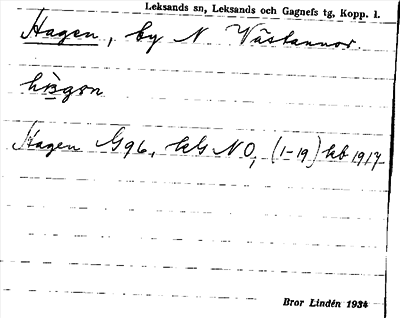 Leksands sn, Leksands och Gagnefs tg, Kopp. l.
Hagen, by N. Västannor.
Hagen G96, kls NO, (1-19) hb 1917
Bror Lindén 1934